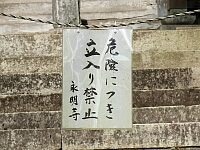 危険につき
立入り禁止
永明寺